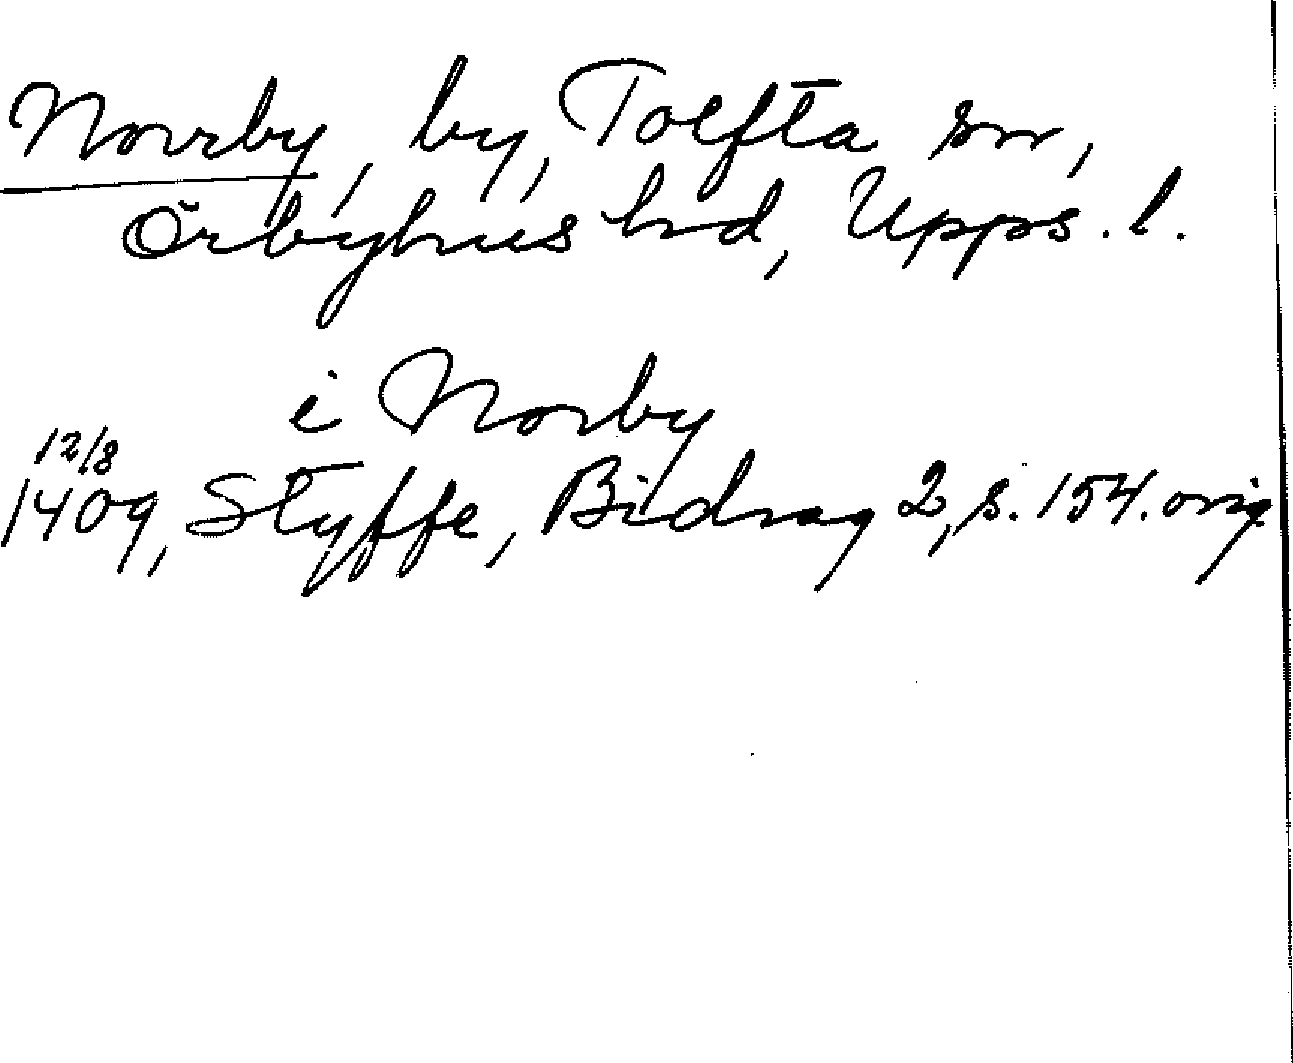 Norrby, by, Tolfta sn,
Örbyhus hd, Upps. l.
i Norby
12/8
1409, Styffe, Bidrag 2, s. 154. orig